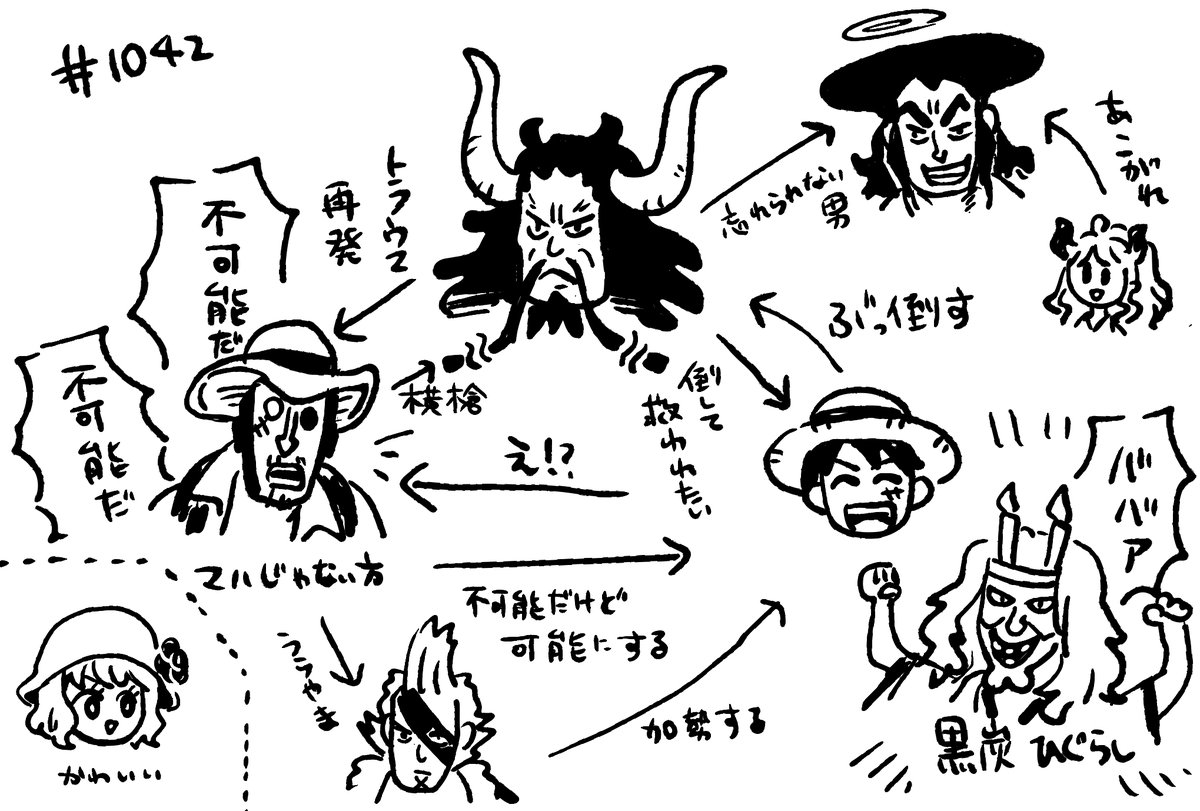 #1042
トラウマ
再発
不可能だ
不可能だ
忘れられない
男
あこがれ
ぶっ倒す
横槍
倒して
救われたい
え!?
ババア
マハじゃない方
不可能だけど
可能にする
うらやま
加勢する
かわいい
黒炭 ひぐらし